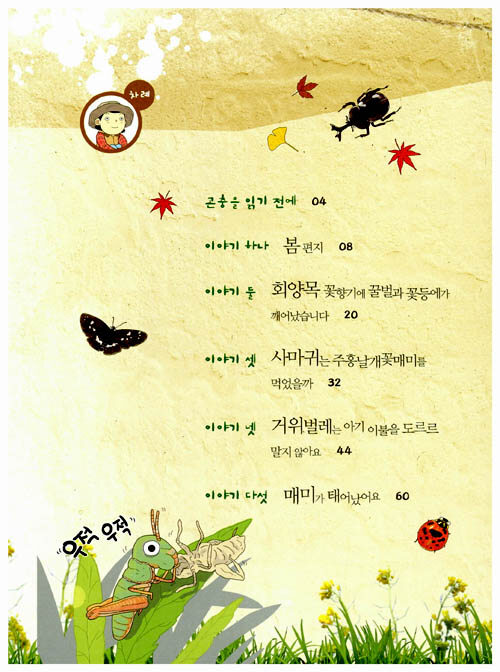 차례
곤충을 읽기 전에 04
이야기 하나 봄 편지 08
이야기 둘 회양목 꽃향기에 꿀벌과 꽃등에가
깨어났습니다 20
이야기 셋 사마귀는 주홍날개꽃매미를
먹었을까 32
이야기 넷 거위벌레는 아기 이불을 도르르
말지 않아요 44
이야기 다섯 매미가 태어났어요 60
우적 우적